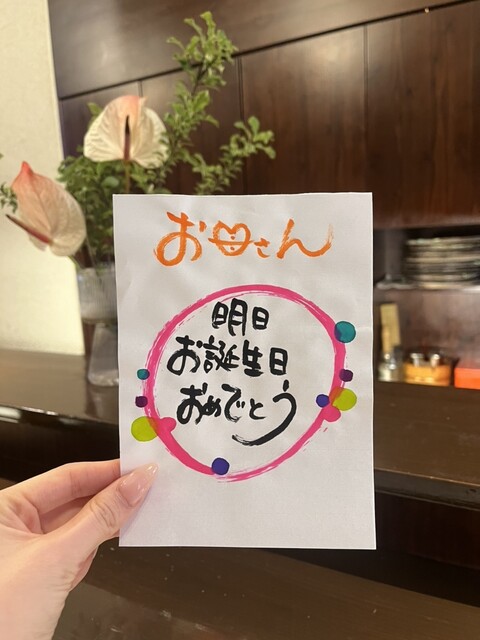 お母さん
明日
お誕生日
おめでとう